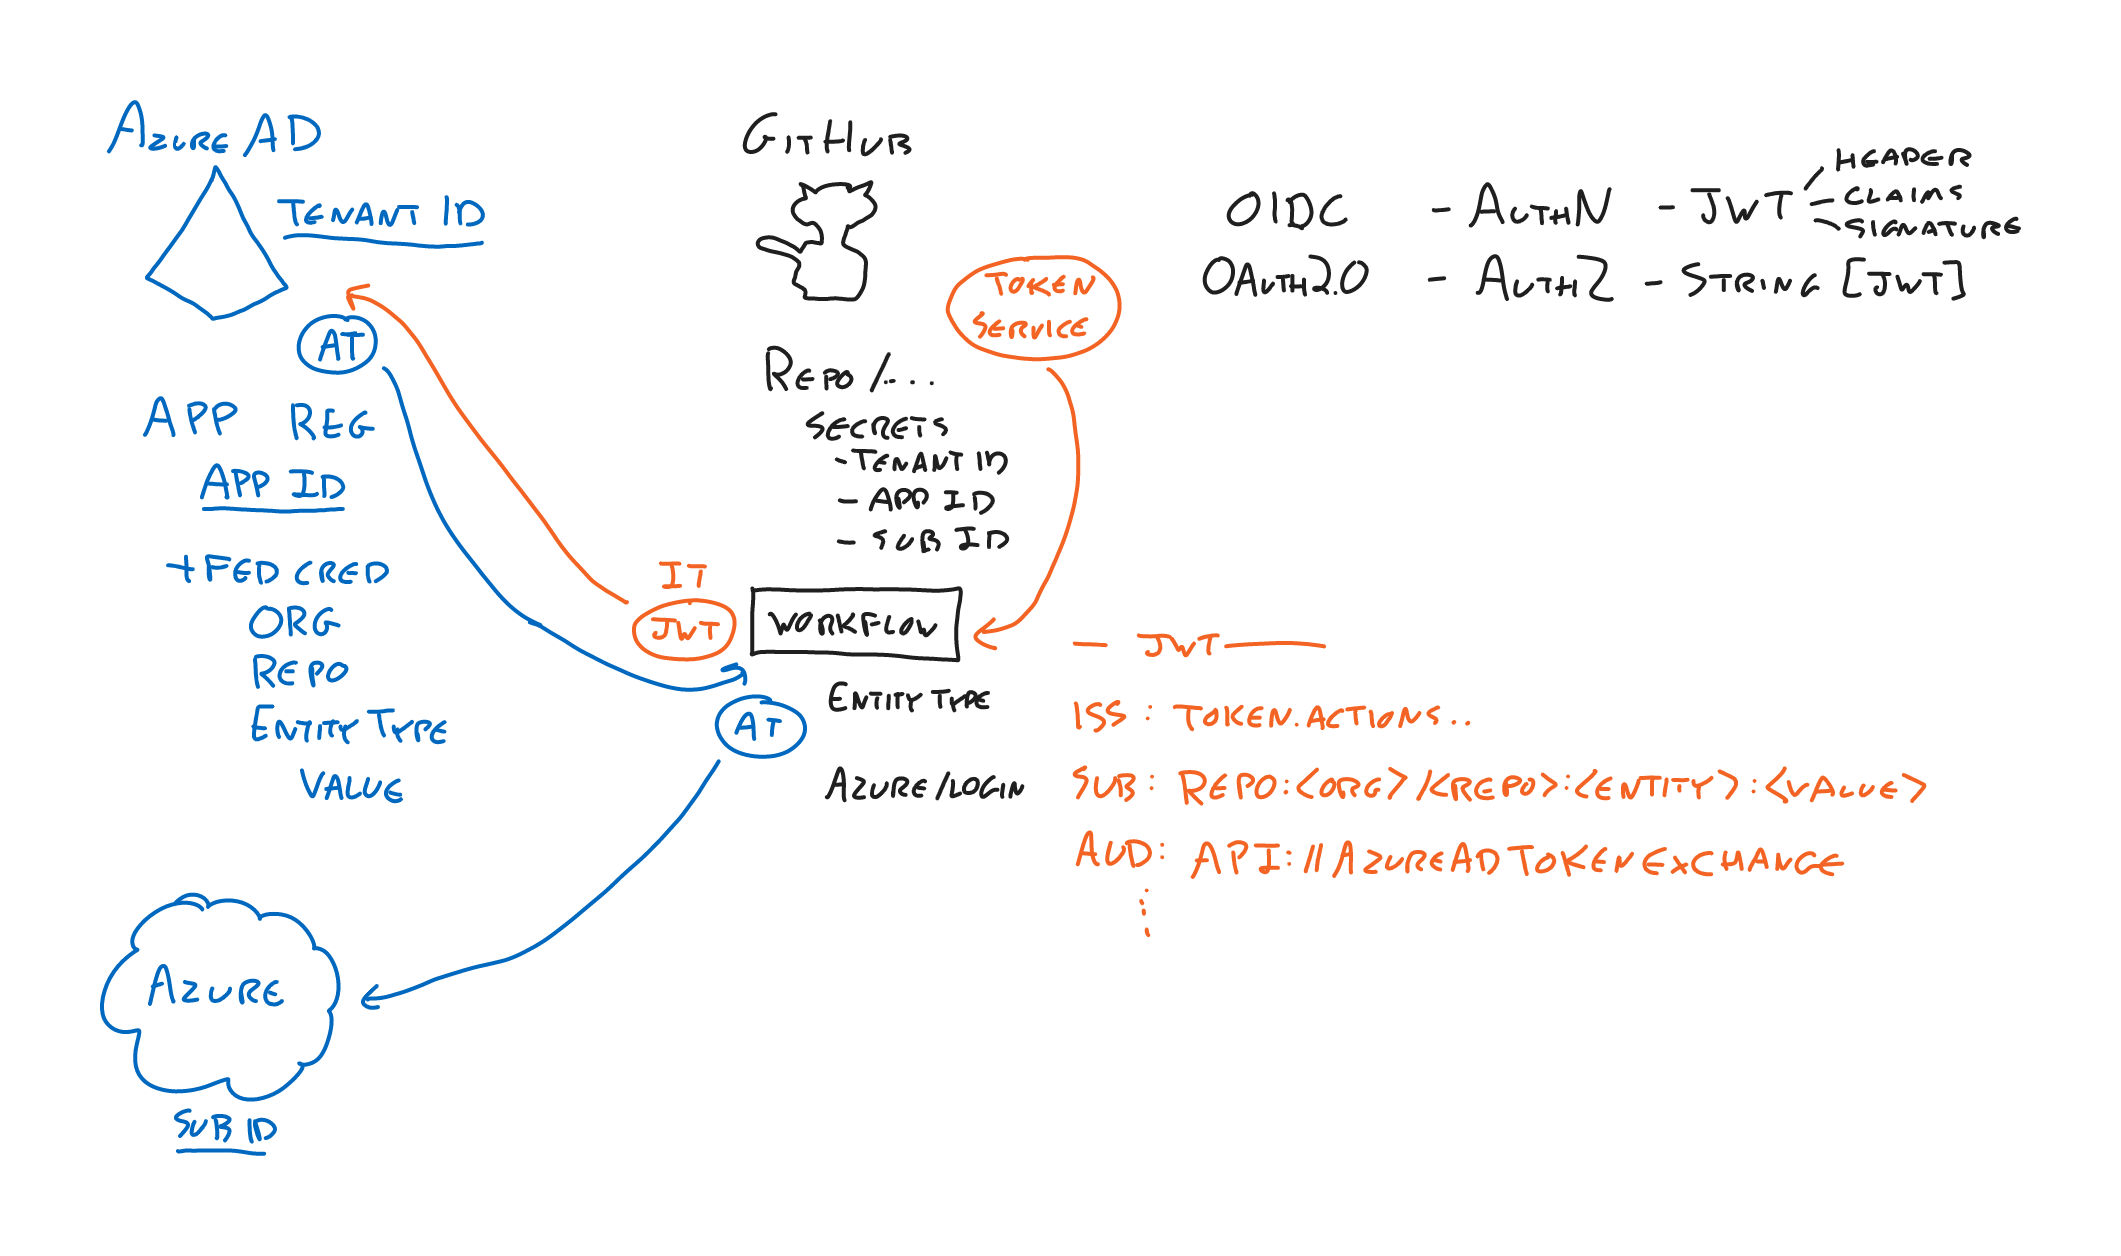 AZURE AD
TENANT ID
AT
APP REG
APP ID
+FED CRED
ORG
REPO
ENTITY TYPE
VALUE
AZURE
SUB ID
GITHUB
TOKEN
SERVICE
REPO/....
SECRETS
- TENANT ID
- APP ID
- SUB ID
IT
JWT
WORKFLOW
ENTITY TYPE
AT
AZURE/LOGIN
OIDC - AUTHN - JWT
HEADER
CLAIMS
SIGNATURE
OAUTH2.0 - AUTHZ - STRING [JWT]
- JWT -
ISS: TOKEN.ACTIONS..
SUB: REPO:<ORG>/<REPO>:<ENTITY>:<VALUE>
AUD: API://AZUREADTOKENEXCHANGE